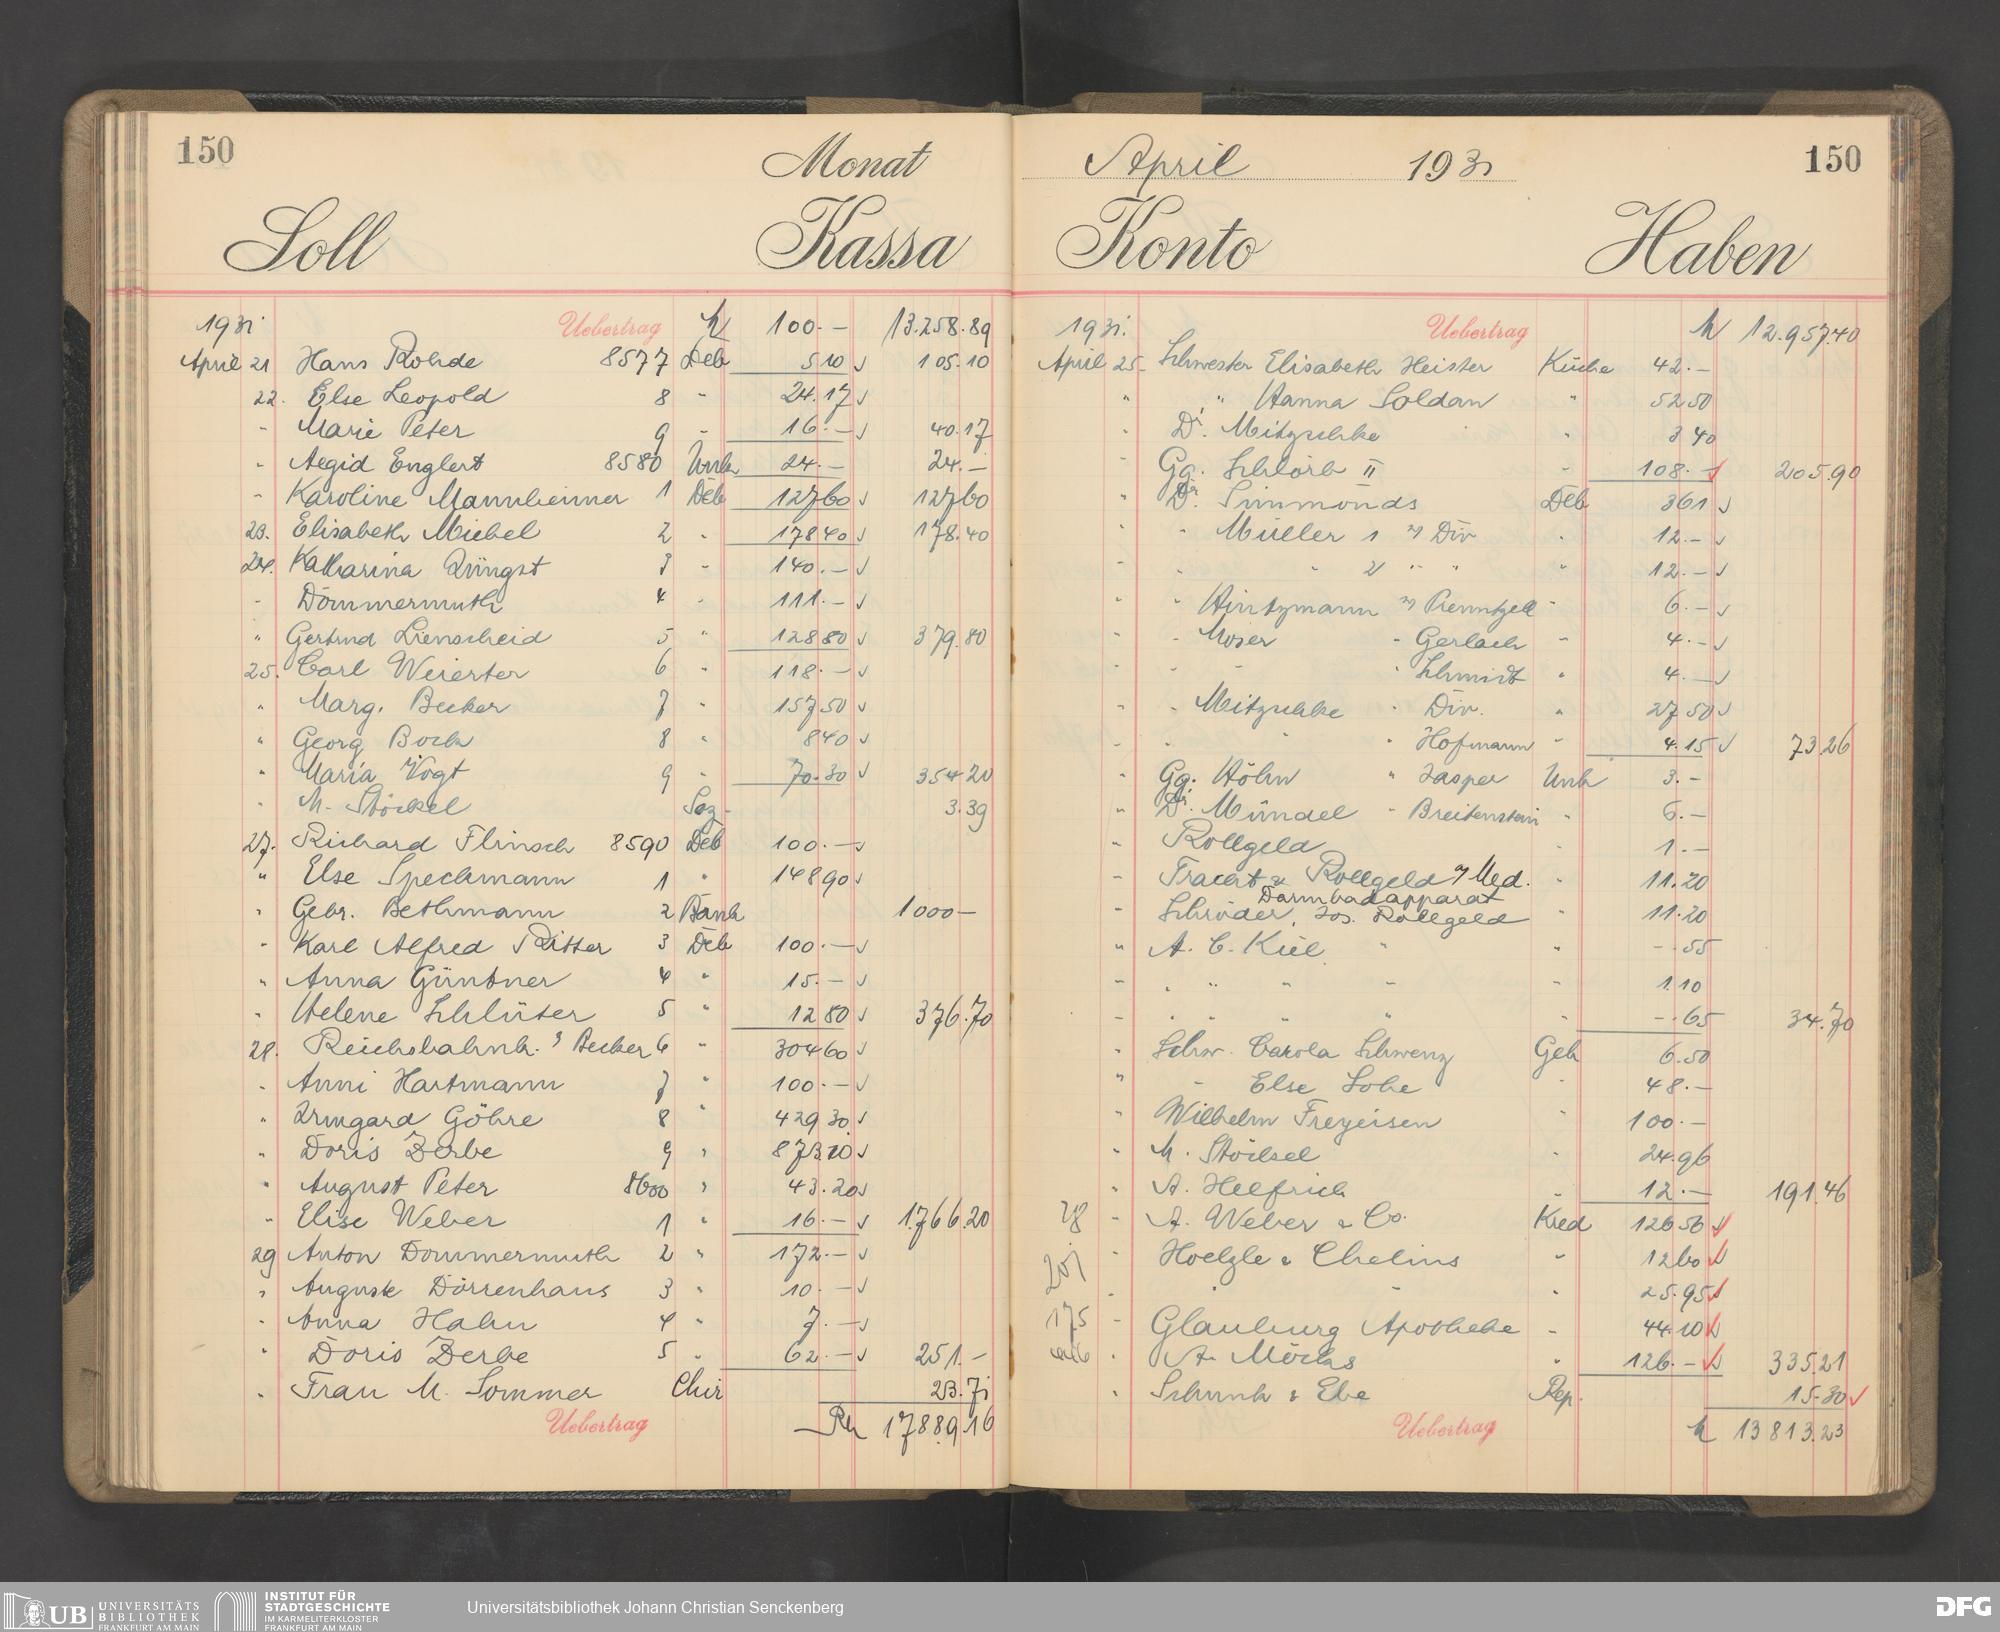 150 Monat
Soll Kassa
1931. Uebertrag 100.- 13.258.89
April 21 Hans Rohde 8577 Deb 5 10 105.10
22. Else Leopold 8 " 24.17
" Marie Peter 9 " 16.- 40.17
" Aegid Englert 8580 Unk 24.- 24.-
" Karoline Mannheimer 1 Deb 127 60 127 60
23. Elisabeth Miebel 2 " 178 40 178.40
24. Katharina Züngst 3 " 140.-
" Dömmermuth 4 " 111.-
" Gertrud Lienscheid 5 " 128 80 379.80
25. Carl Weierter 6 " 118.-
" Marg. Becker 7 " 157 50
" Georg Bock 8 " 8 40
" Maria Vogt 9 " 70.30 354 20
" M. Stöckel Soz - 3.39
27. Richard Flinsch 8590 Deb 100.-
" Else Speckmann 1 " 148 90
" Gebr. Bethmann 2 Bank 1000-
" Karl Alfred Ritter 3 Deb 100.-
" Anna Güntner 4 " 15.-
" Helene Schlüter 5 " 12 80 376.70
28. Reichsbahnk. Becker 6 " 304 60
" Anni Hartmann 7 " 100.-
" Irmgard Göhre 8 " 429 30
" Doris Zerbe 9 " 873.10
" August Peter 8600 " 43.20
" Elise Weber 1 " 16.- 1.766.20
29 Anton Dommermuth 2 " 172.-
" Auguste Dörrenhaus 3 " 10.-
" Anna Hahn 4 " 7.-
" Doris Zerbe 5 " 62.- 251.-
" Frau M. Sommer Chir 23.71
Uebertrag 17889.16
April 1931 150
Konto Haben
1931. Uebertrag 12.957.40
April 25. Schwester Elisabeth Heister Küche 42.-
" " Hanna Soldan " 52 50
" Dr. Mitzschke " 3 40
" Gg. Schlörb II " 108.- 205.90
" Dr. Simmonds Deb 3 61
" " Müller 1 Div " 12.-
" " " 2 " " " 12.-
" " Hintzmann " 6.-
" " Moser " Gerlach " 4.-
" " " " Schmidt " 4.-
" " Mitzschke " Div. " 27 50
" " " " Hofmann " 4.15 73.26
" Gg. Höhn " Jasper Unk 3.-
" Dr. Mündel " Breitenstein " 6.-
" Rollgeld " 1.-
" Fracht & Rollgeld Med. " 11.20
Darmbadapparat
" Schröder, Jos. Rollgeld " 11.20
" A. C. Kiel " " -.55
" " " " " " 1.10
" " " " " " -.65 34.70
" Schw. Carola Schwenz Geh 6.50
" " Else Lohe " 48.-
" Wilhelm Freyeisen 100.-
" M. Stöckel " 24.96
" A. Helfrich " 12.- 191.46
28 " A. Weber & Co. Kred 126 56
207 " Hoelzle & Chelius " 12 60
" " " " 25.95
175 " Glauburg Apotheke " 44.10
" A. Möcks " 126.- 335.21
" Schunk & Ebe Rep. 15.30
Uebertrag 13 813.23
UB UNIVERSITÄTS
BIBLIOTHEK
FRANKFURT AM MAIN
INSTITUT FÜR
STADTGESCHICHTE
IM KARMELITERKLOSTER
FRANKFURT AM MAIN
Universitätsbibliothek Johann Christian Senckenberg
DFG